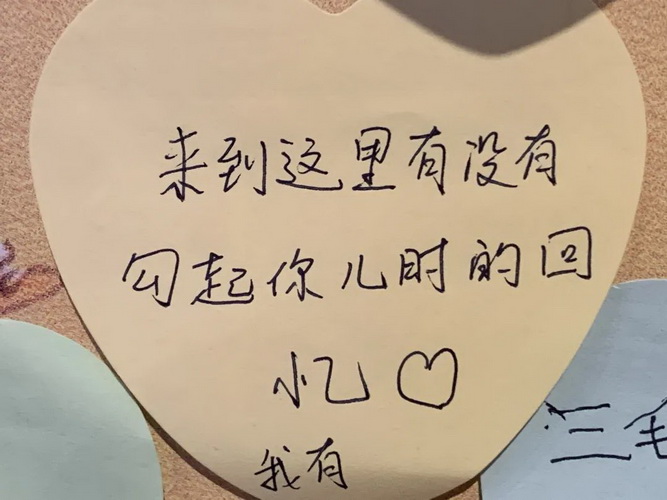 来到这里有没有
勾起你儿时的回
忆♡
我有
三毛